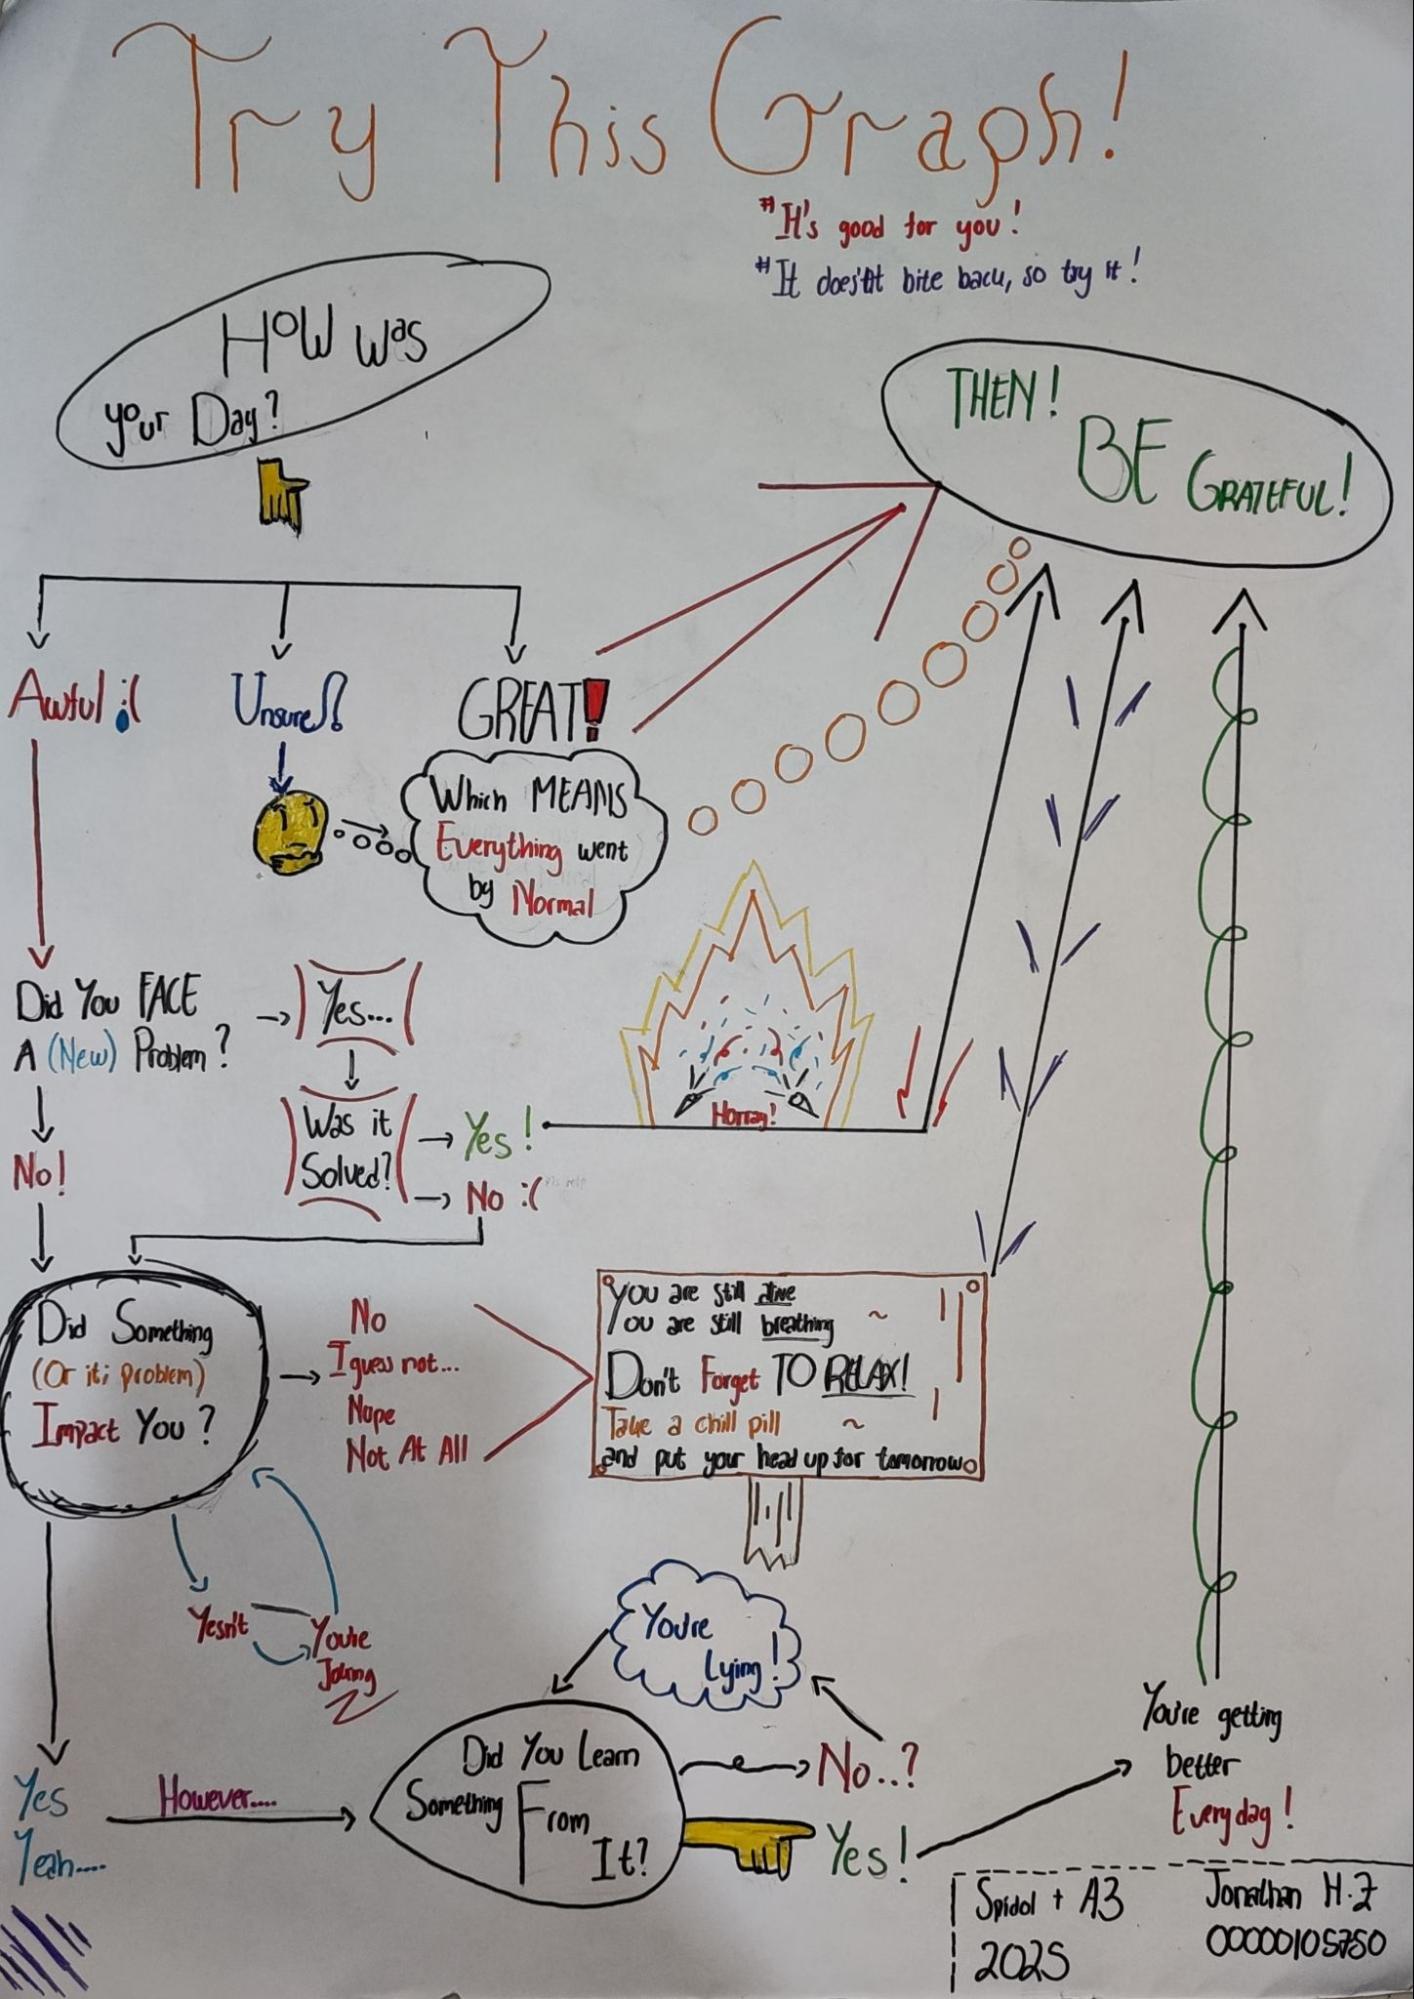 Try This Graph!
"It's good for you!
"It does'nt bite back, so try it!
How was
your Day?
THEN!
BE GRATEFUL!
Awful :(
Unsure?
GREAT!
Which MEANS
Everything went
by Normal
Did You FACE
A (New) Problem?
Yes...
No!
Was it
Solved?
Yes!
No :(
Horray!
Did Something
(Or it; problem)
Impact You?
No
I guess not...
Nope
Not At All
You are still alive
You are still breathing
Don't Forget TO RELAX!
Take a chill pill
and put your head up for tomorrow
Yesn't
You're
Joking
You're
Lying!
Yes
Yeah....
However....
Did You Learn
Something From
It?
No..?
Yes!
You're getting
better
Everyday!
Spidol + A3
2025
Jonathan H.Z
00000105750